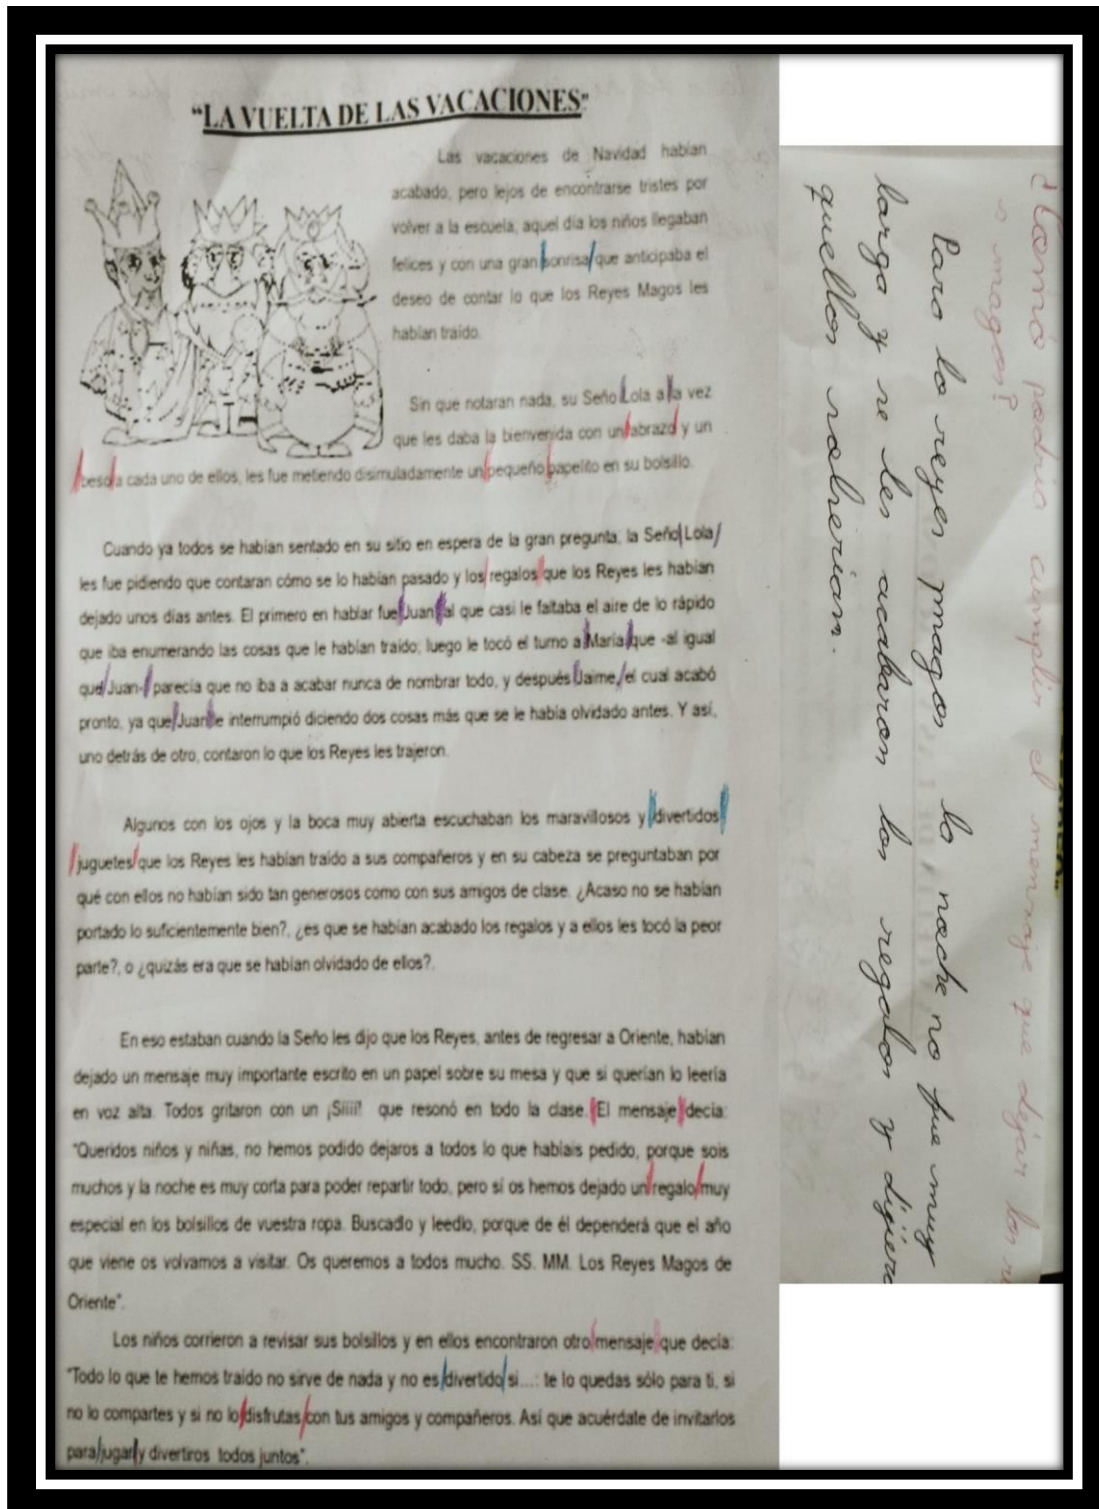 “LA VUELTA DE LAS VACACIONES”
Las vacaciones de Navidad habían
acabado, pero lejos de encontrarse tristes por
volver a la escuela, aquel día los niños llegaban
felices y con una gran sonrisa que anticipaba el
deseo de contar lo que los Reyes Magos les
habían traído.
Sin que notaran nada, su Seño Lola a la vez
que les daba la bienvenida con un abrazo y un
beso a cada uno de ellos, les fue metiendo disimuladamente un pequeño papelito en su bolsillo.
Cuando ya todos se habían sentado en su sitio en espera de la gran pregunta, la Seño Lola
les fue pidiendo que contaran cómo se lo habían pasado y los regalos que los Reyes les habían
dejado unos días antes. El primero en hablar fue Juan al que casi le faltaba el aire de lo rápido
que iba enumerando las cosas que le habían traído; luego le tocó el turno a María que -al igual
que Juan- parecía que no iba a acabar nunca de nombrar todo, y después Jaime, el cual acabó
pronto, ya que Juan le interrumpió diciendo dos cosas más que se le había olvidado antes. Y así,
uno detrás de otro, contaron lo que los Reyes les trajeron.
Algunos con los ojos y la boca muy abierta escuchaban los maravillosos y divertidos
juguetes que los Reyes les habían traído a sus compañeros y en su cabeza se preguntaban por
qué con ellos no habían sido tan generosos como con sus amigos de clase. ¿Acaso no se habían
portado lo suficientemente bien?, ¿es que se habían acabado los regalos y a ellos les tocó la peor
parte?, o ¿quizás era que se habían olvidado de ellos?.
En eso estaban cuando la Seño les dijo que los Reyes, antes de regresar a Oriente, habían
dejado un mensaje muy importante escrito en un papel sobre su mesa y que si querían lo leería
en voz alta. Todos gritaron con un ¡Síííí! que resonó en todo la clase. El mensaje decía:
"Queridos niños y niñas, no hemos podido dejaros a todos lo que habíais pedido, porque sois
muchos y la noche es muy corta para poder repartir todo, pero sí os hemos dejado un regalo muy
especial en los bolsillos de vuestra ropa. Buscadlo y leedlo, porque de él dependerá que el año
que viene os volvamos a visitar. Os queremos a todos mucho. SS. MM. Los Reyes Magos de
Oriente".
Los niños corrieron a revisar sus bolsillos y en ellos encontraron otro mensaje que decía:
"Todo lo que te hemos traído no sirve de nada y no es divertido si...: te lo quedas sólo para ti, si
no lo compartes y si no lo disfrutas con tus amigos y compañeros. Así que acuérdate de invitarlos
para jugar y divertiros todos juntos".
podria cumplir el mensaje que dejar los
magos?
Para lo reyes magos lo noche no fue muy
larga y se les acabaron los regalos y
quellos